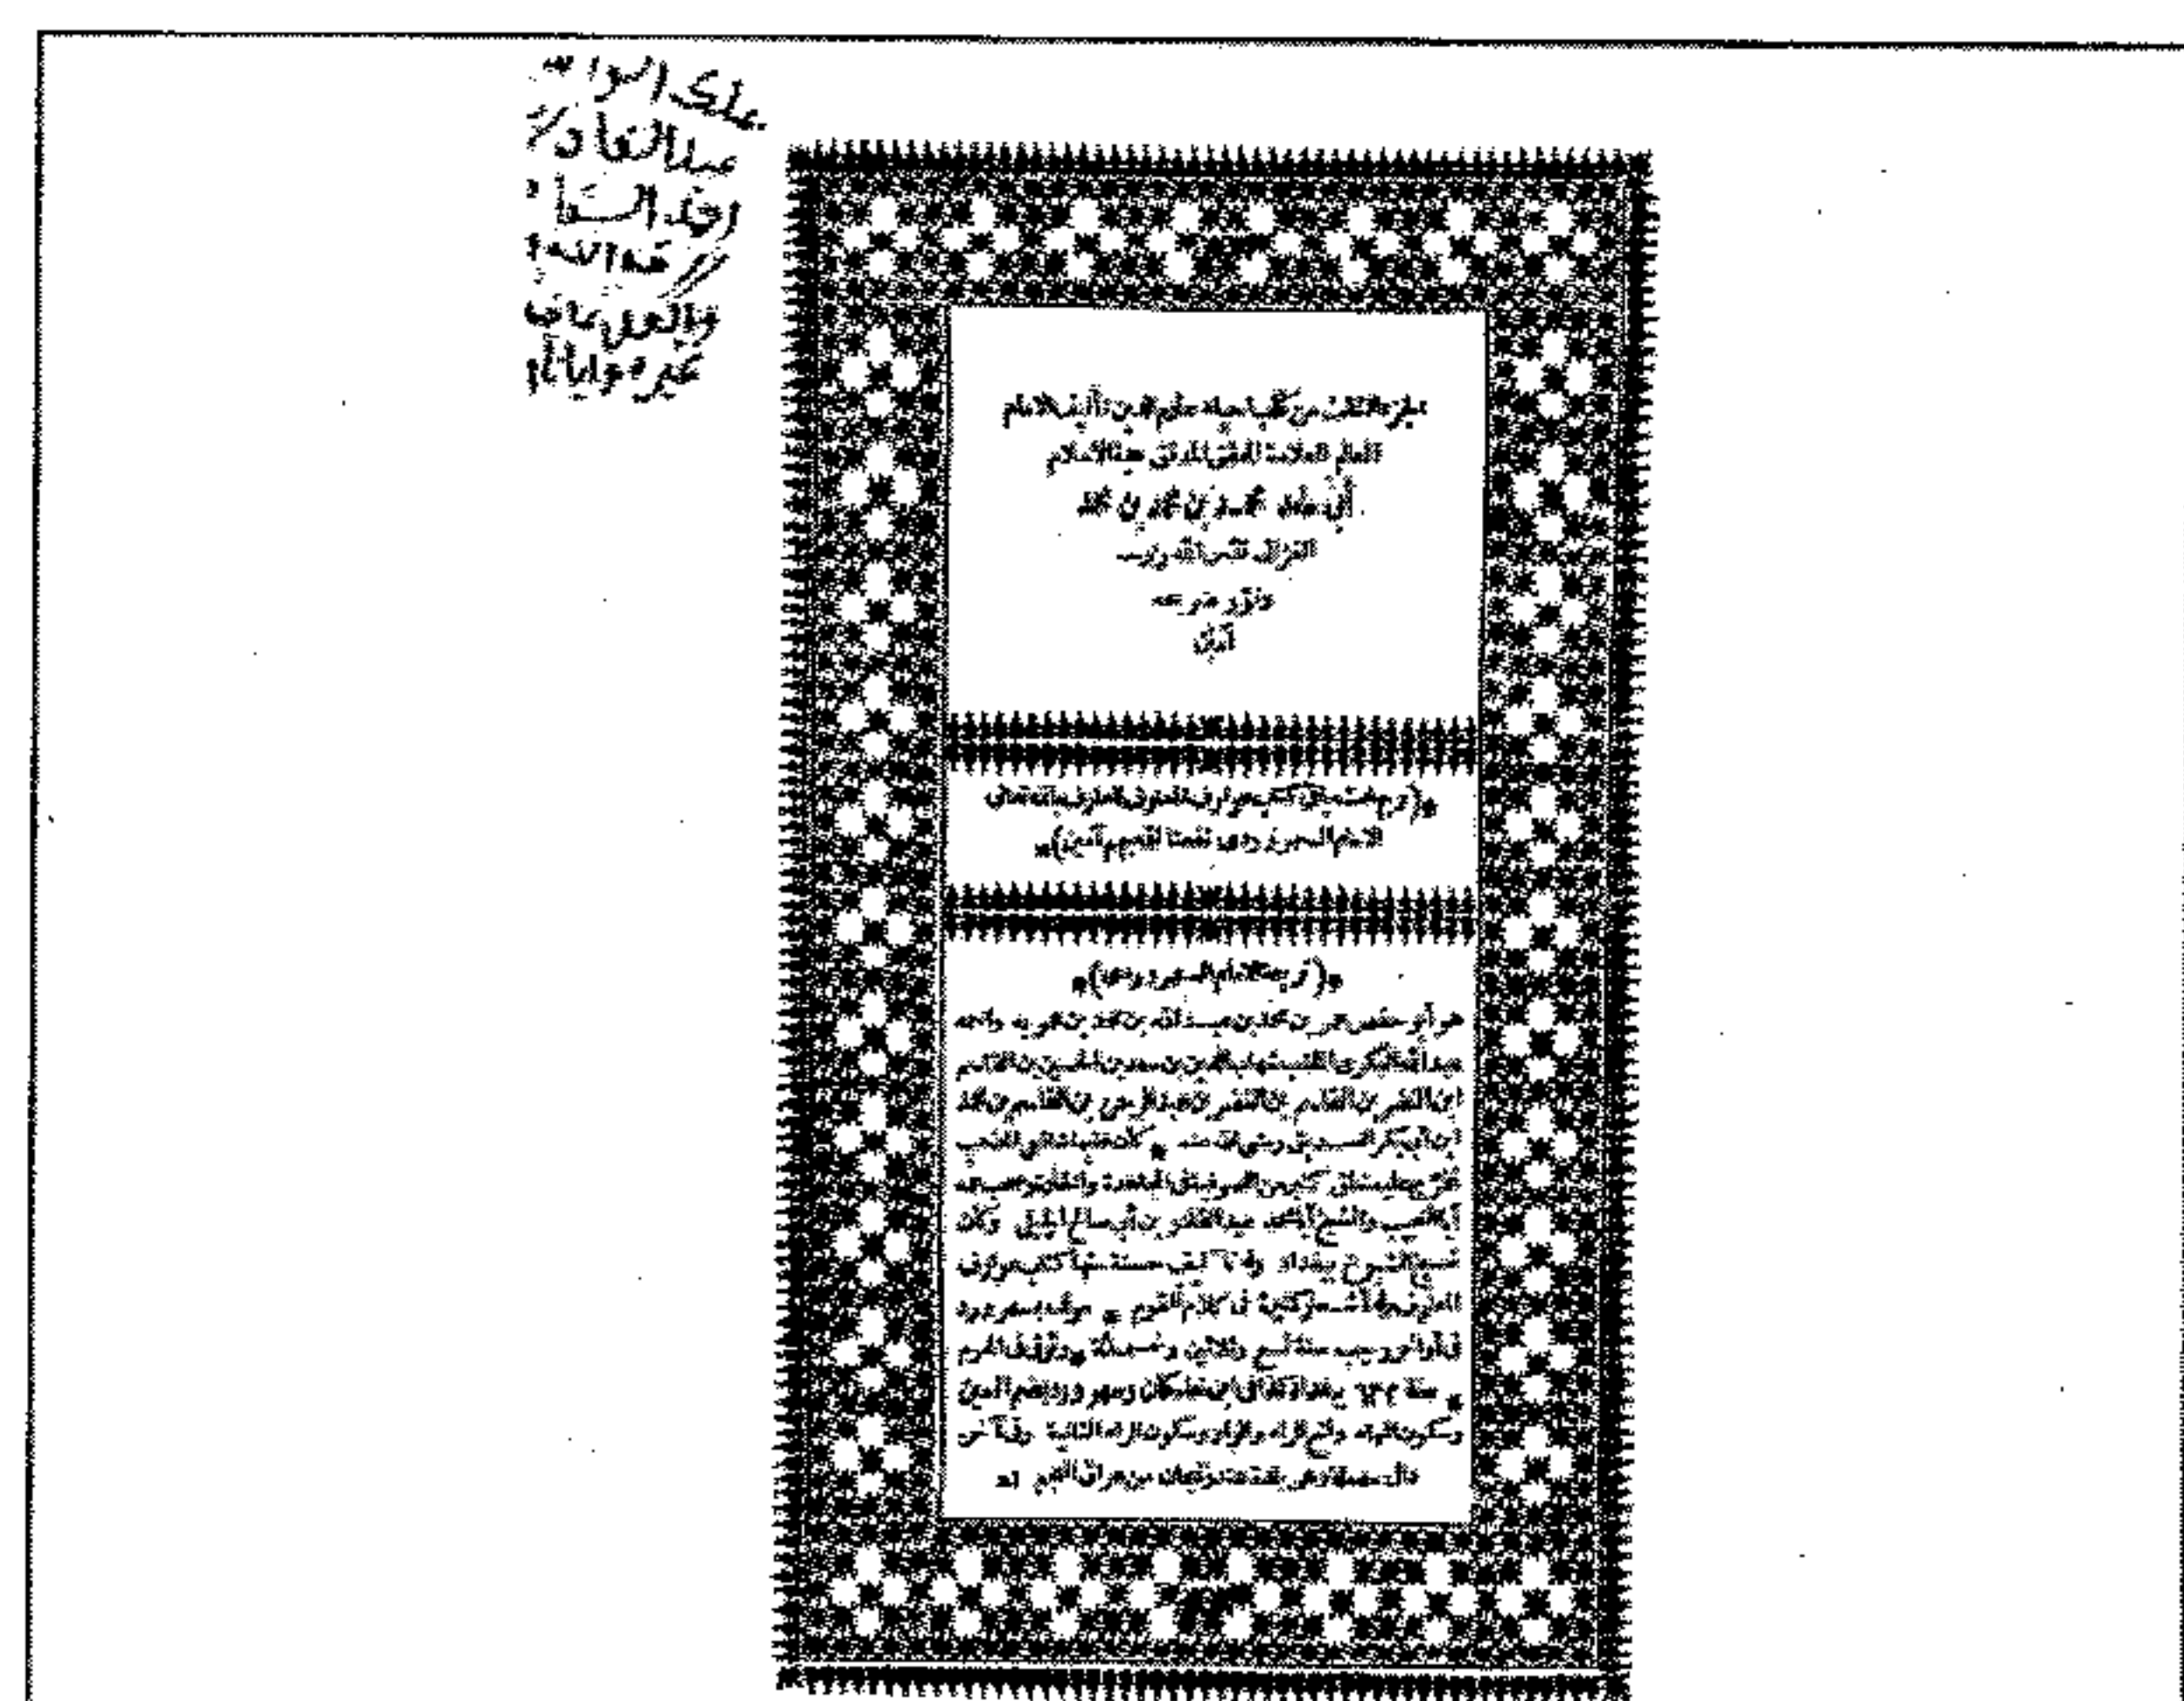 الجزء الثالث من كتاب احياء علوم الدين تأليف الامام
العالم العلامة المحقق المدقق حجة الاسلام
أبي حامد محمد بن محمد بن محمد
الغزالي قدّس الله روحه
ونوّر ضريحه
آمين
*( وبهامشه باقي كتاب عوارف المعارف للعارف بالله تعالى
الامام السهروردي نفعنا الله بهم آمين)*
*( ترجمة الامام السهروردي )*
هو أبو حفص عمر بن محمد بن عبد الله بن محمد بن عمويه واسمه
عبد الله البكري الملقب شهاب الدين بن سعد بن الحسين بن القاسم
ابن النضر بن القاسم بن النضر بن عبد الرحمن بن القاسم بن محمد
ابن أبي بكر الصديق رضي الله عنه * كان فقيها شافعي المذهب
تخرّج عليه خلق كثير من الصوفية في المجاهدة والخلوة وصحب عمه
أبا النجيب والشيخ أبا محمد عبد القادر بن أبي صالح الجيلي وكان
شيخ الشيوخ ببغداد وله تآليف حسنة منها كتاب عوارف
المعارف وله أشعار كثيرة في كلام القوم * مولده بسهرورد
في أواخر رجب سنة تسع وثلاثين وخمسمائة * وتوفي في المحرم
* سنة ٦٣٢ ببغداد قاله ابن خلكان وسهرورد بضم السين
وسكون الهاء وفتح الراء والواو وسكون الراء الثانية وفي آخره
دال مهملة وهي بليدة عند زنجان من عراق العجم اه